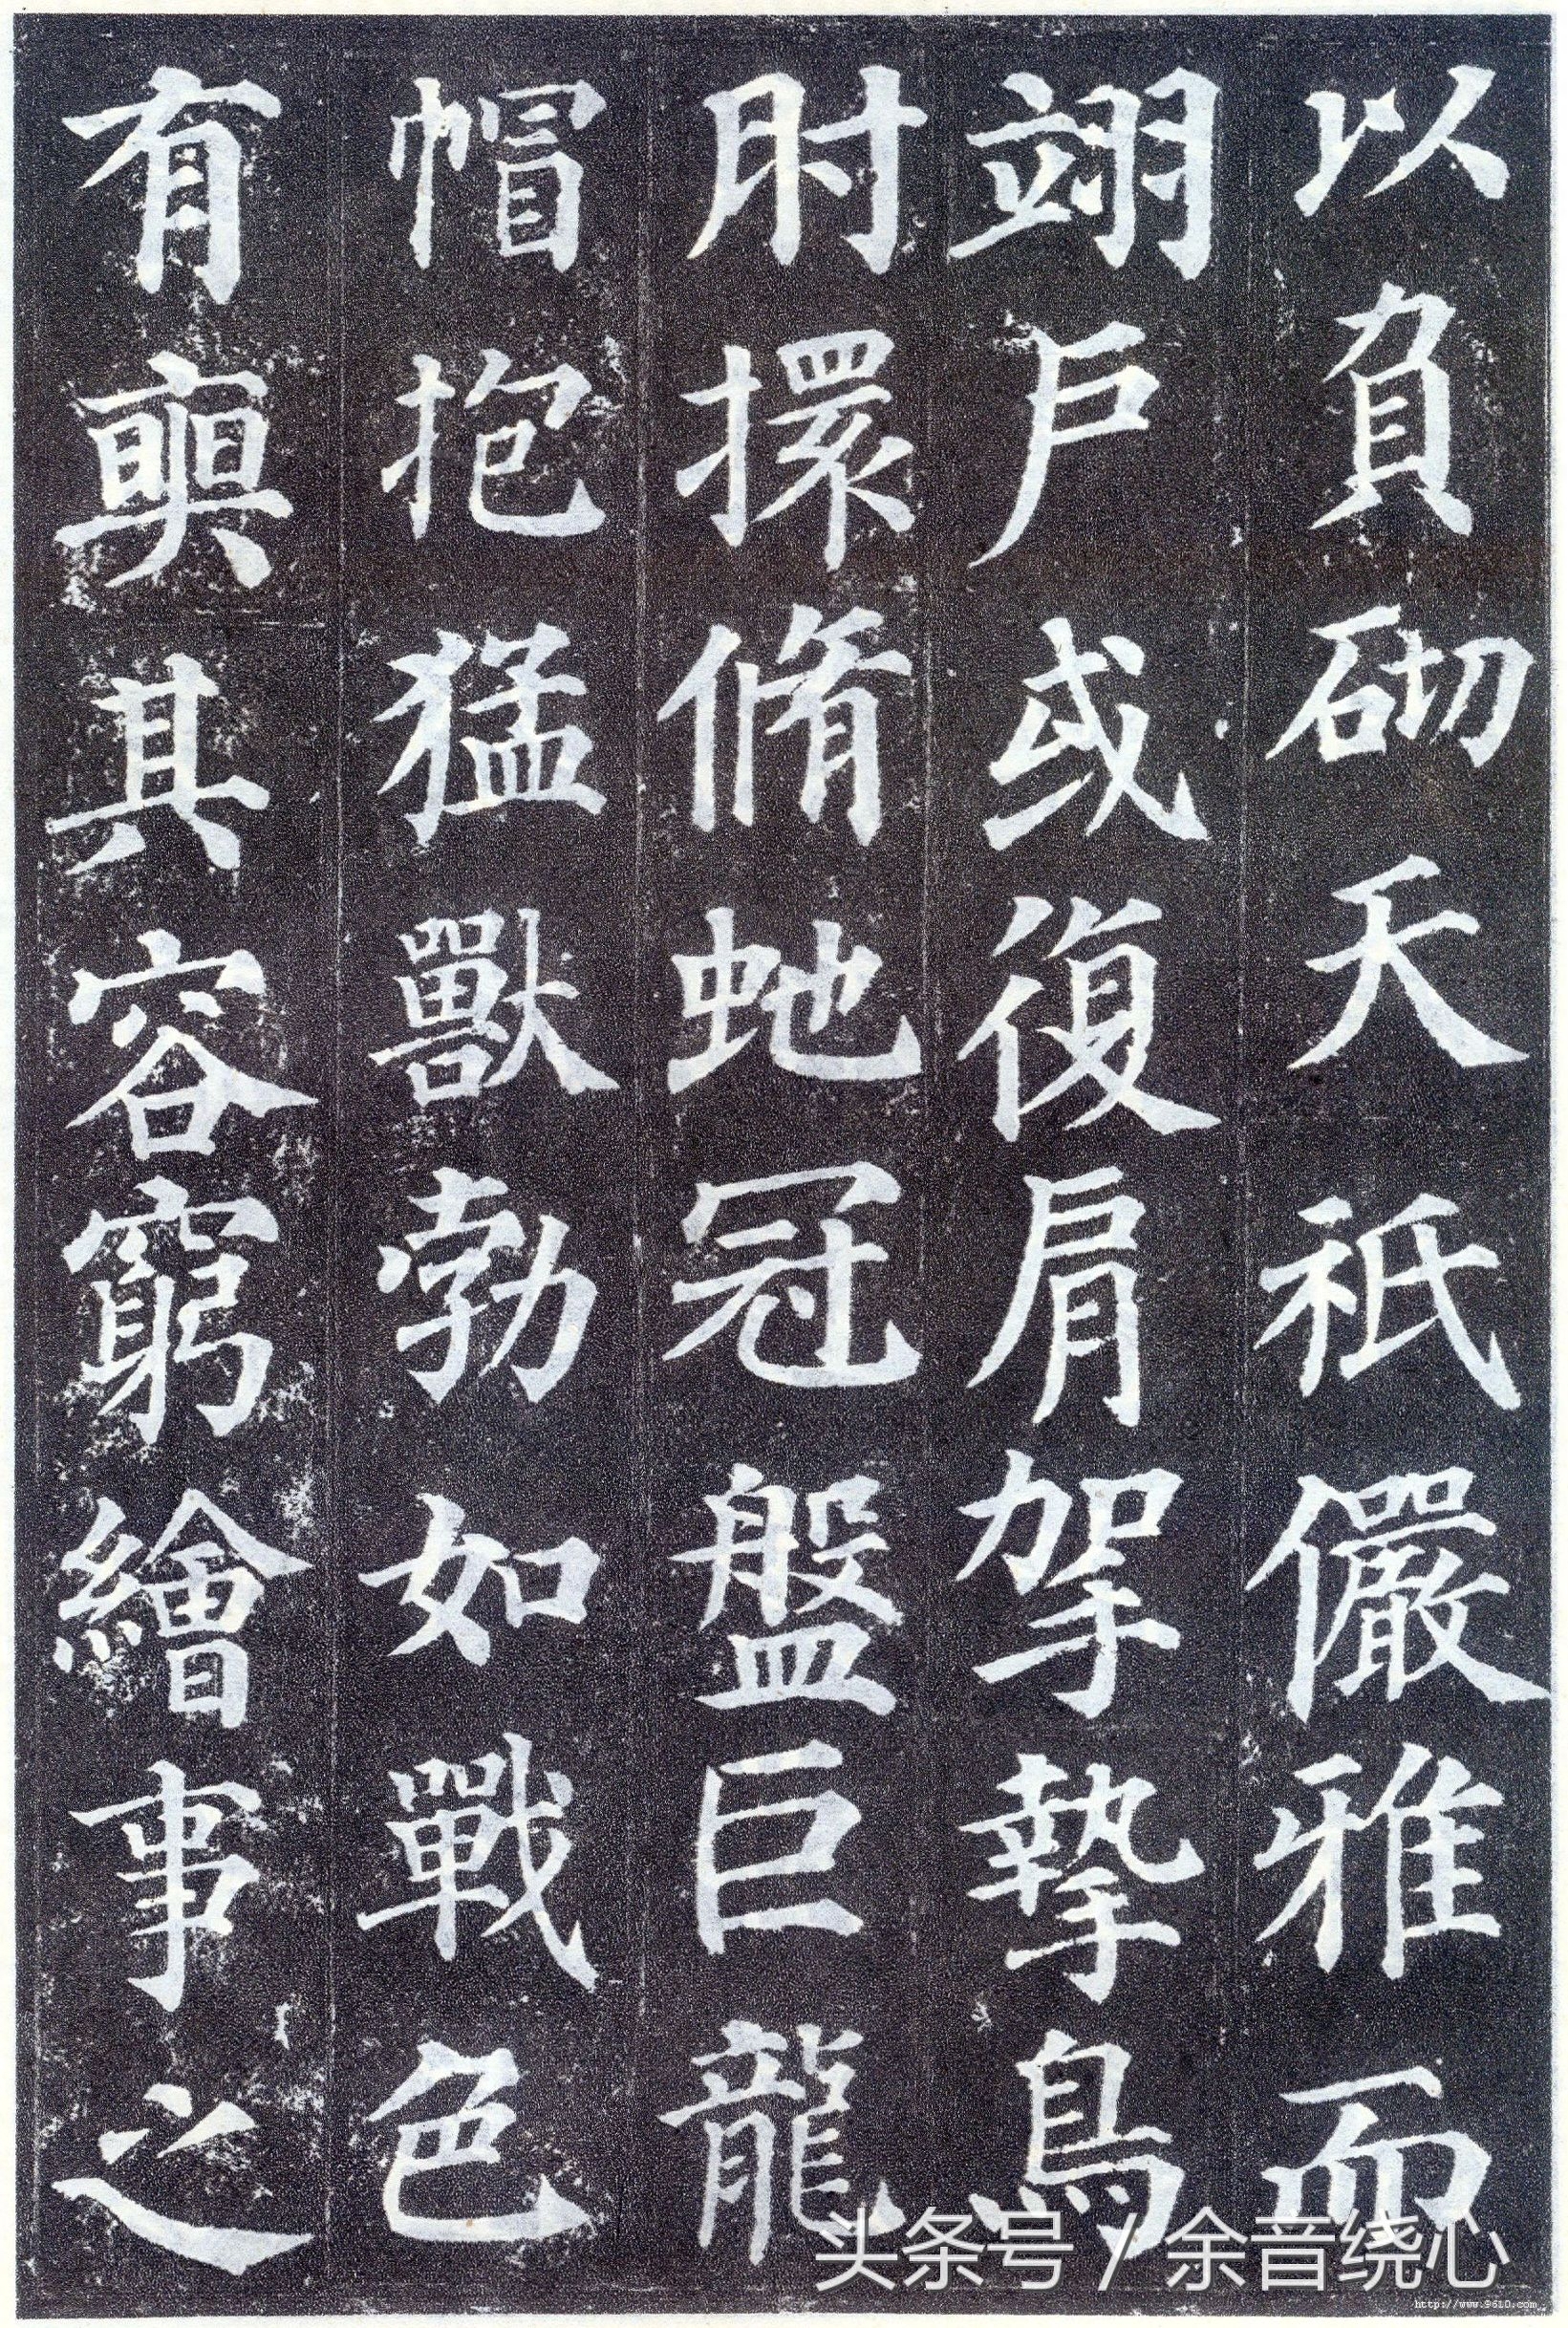 以負砌夭祇儼雅而
翊戶或復肩挐摯鳥
肘擐脩虵冠盤巨龍
帽抱猛獸勃如戰色
有奭其容窮繪事之
头条号 / 余音绕心
http://www.9610.com